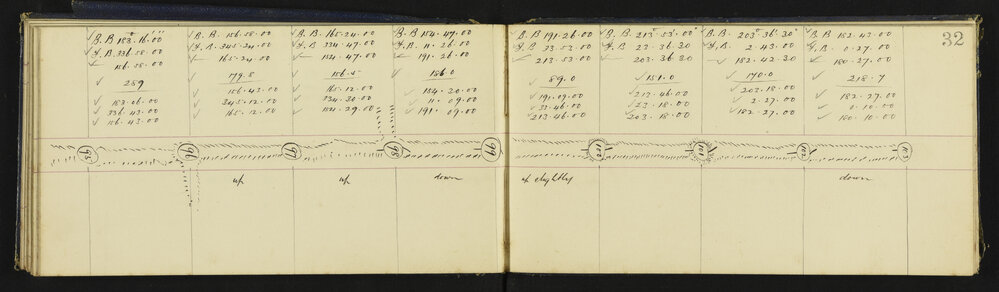 32
B. B 183. 16. 00
F. B. 336. 58. 00
156. 58. 00
289
183. 06. 00
336. 43. 00
156. 43. 00
B. B. 156. 58. 00
F. B. 345. 24. 00
165. 24. 00
179. 8
156. 43. 00
345. 12. 00
165. 12. 00
B. B 165. 24. 00
F. B 334. 47. 00
154. 47. 00
156. 5
165. 12. 00
334. 20. 00
154. 29. 00
B. B 154. 47. 00
F. B 11. 26. 00
191. 26. 00
186. 0
154. 20. 00
11. 09. 00
191. 09. 00
B. B 191. 26. 00
F. B 33. 53. 00
213. 53. 00
89. 0
191. 09. 00
33. 46. 00
213. 46. 00
B. B. 213° 53. 00"
F. B 23. 36. 30
203. 36. 30
151. 0
213. 46. 00
23. 18. 00
203. 18. 00
B. B. 203° 36' 30"
F. B. 2. 43. 00
182. 42. 30
170. 0
203. 18. 00
2. 27. 00
182. 27. 00
B. B 182. 43. 00
F. B. 0. 27. 00
180. 27. 00
218. 7
182. 27. 00
0. 10. 00
180. 10. 00
95 96 97 98 99 100 101 102 103
up up down up slightly down